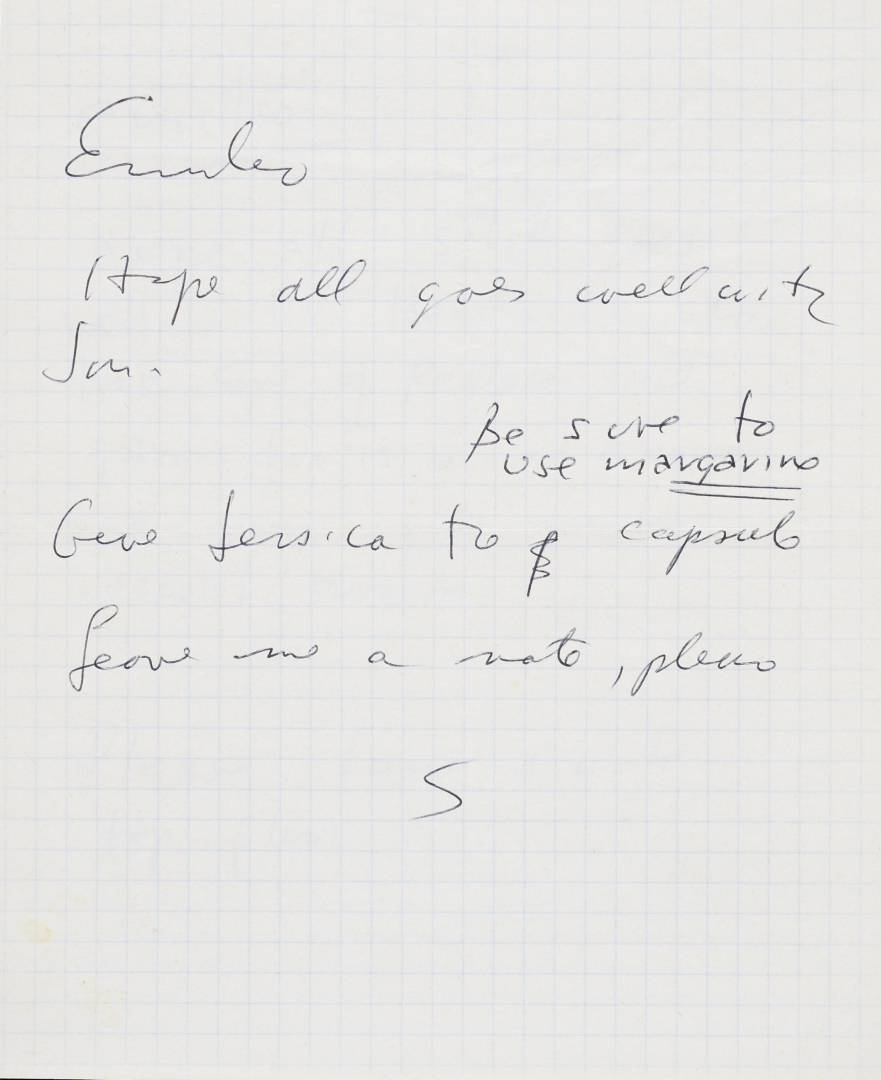 Emilio
Hope all goes well with
Son.
Be sure to
use margarine
Give Jessica to capsule
Leave me a note, please
S